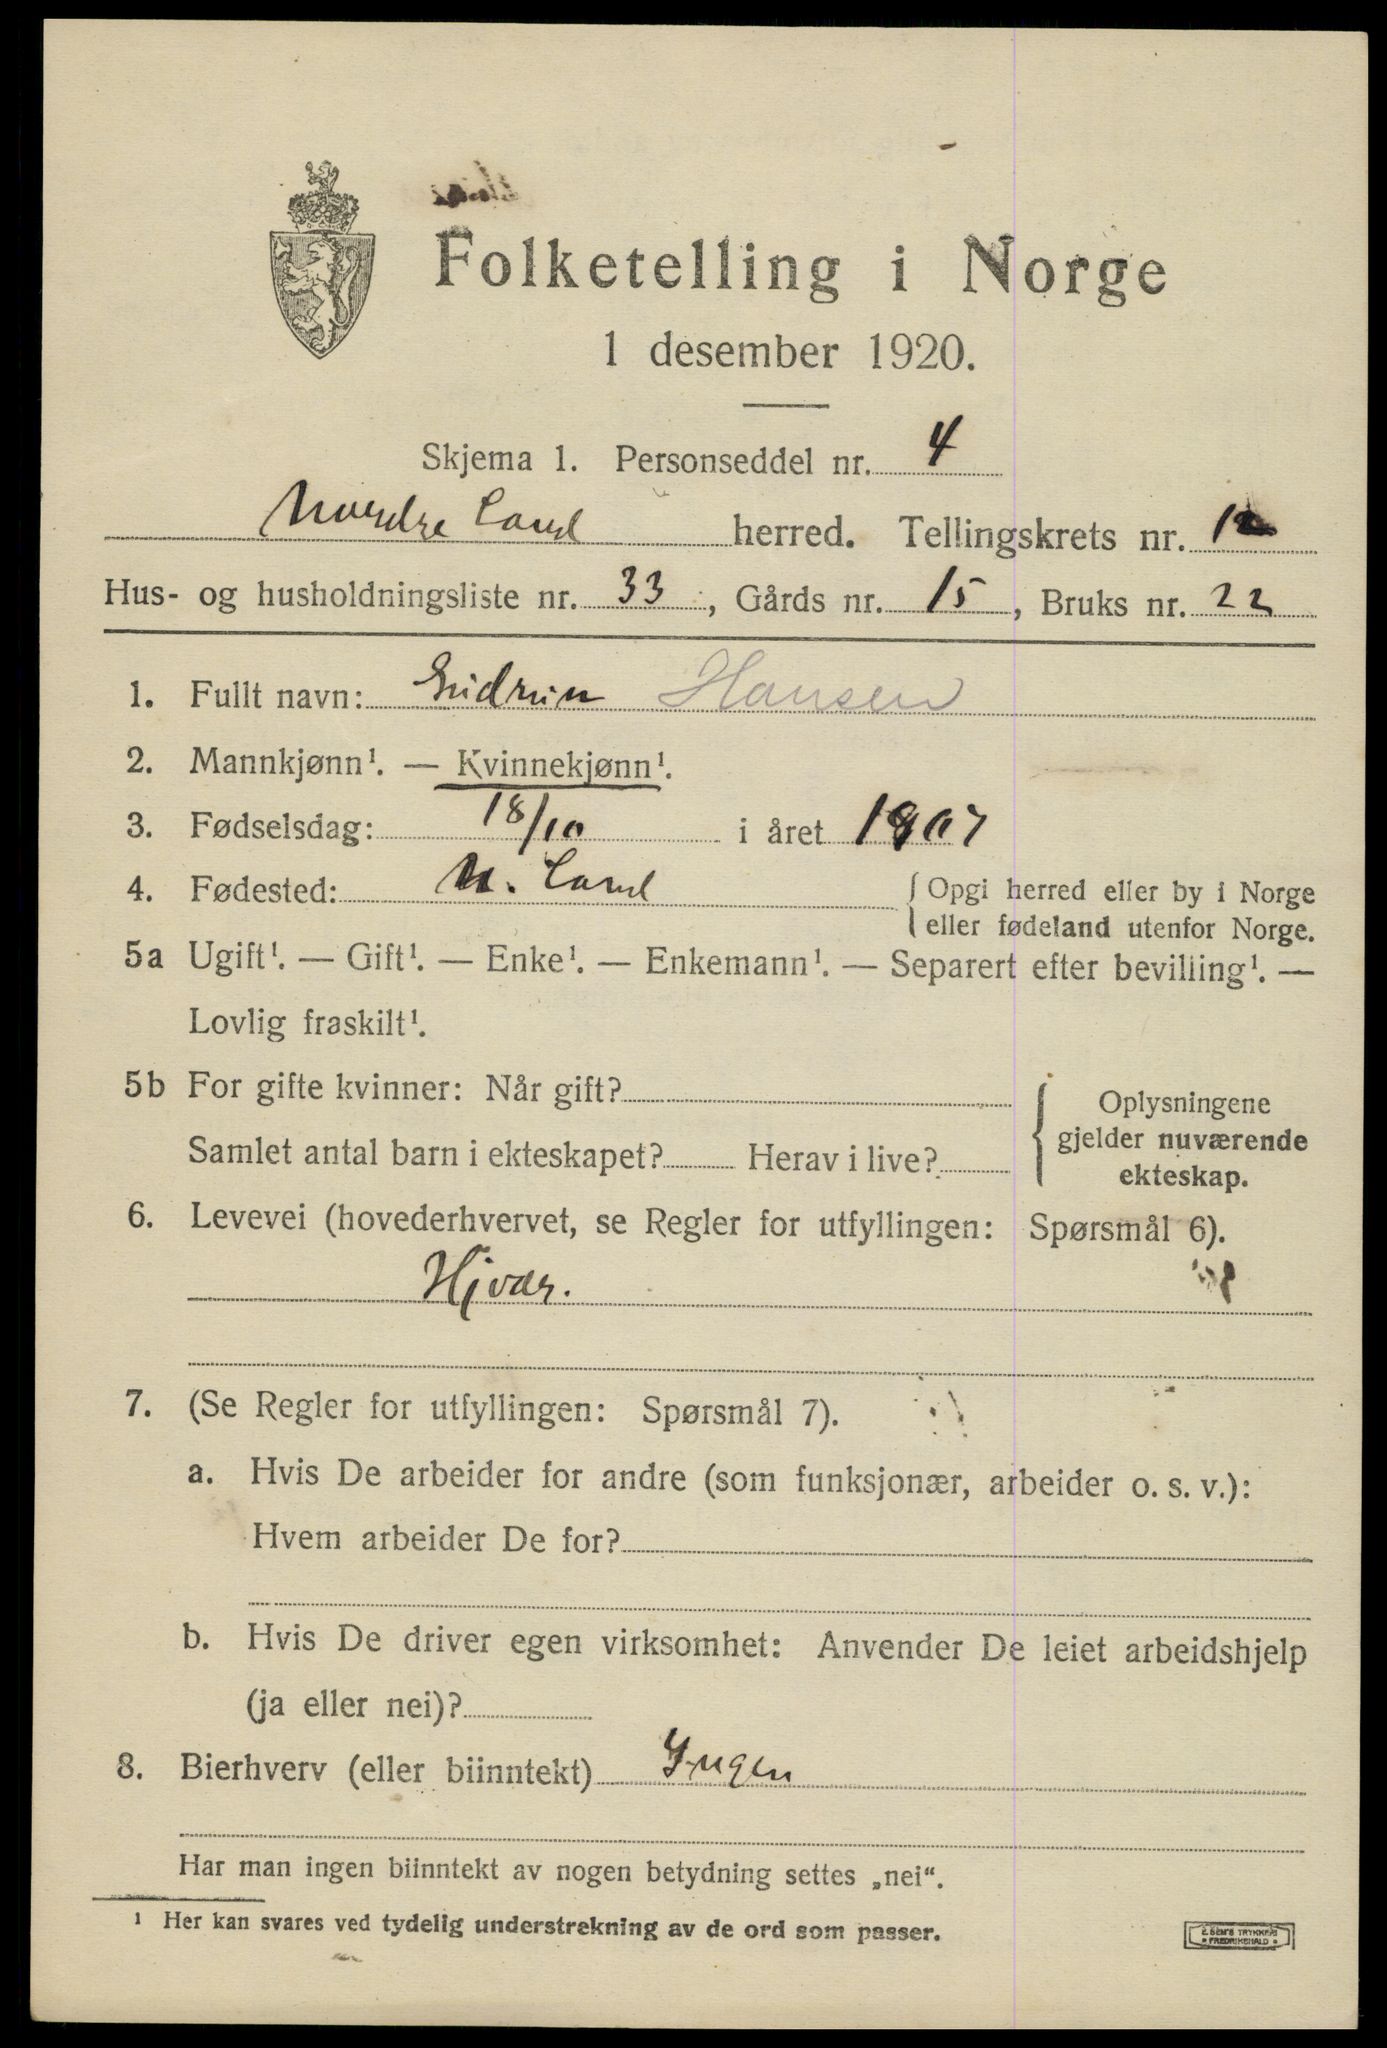 Folketelling i Norge
1 desember 1920.
Skjema 1. Personseddel nr. 4
Nordre Land herred. Tellingskrets nr. 12
Hus- og husholdningsliste nr. 33, Gårds nr. 15, Bruks nr. 22
1. Fullt navn: Gudrun Hansen
2. Mannkjønn¹. — Kvinnekjønn¹.
3. Fødselsdag: 18/10 i året 1907
4. Fødested: N. Land { Opgi herred eller by i Norge
eller fødeland utenfor Norge.
5a Ugift¹. — Gift¹. — Enke¹. — Enkemann¹. — Separert efter bevilling¹. —
Lovlig fraskilt¹.
5b For gifte kvinner: Når gift?
Samlet antal barn i ekteskapet? Herav i live?
Oplysningene
gjelder nuværende
ekteskap.
6. Levevei (hovederhvervet, se Regler for utfyllingen: Spørsmål 6).
Hjvær.
7. (Se Regler for utfyllingen: Spørsmål 7).
a. Hvis De arbeider for andre (som funksjonær, arbeider o. s. v.):
Hvem arbeider De for?
b. Hvis De driver egen virksomhet: Anvender De leiet arbeidshjelp
(ja eller nei)?
8. Bierhverv (eller biinntekt) Ingen
Har man ingen biinntekt av nogen betydning settes „nei“.
¹ Her kan svares ved tydelig understrekning av de ord som passer.
E. SEM'S TRYKKERI
FREDRIKSHALD